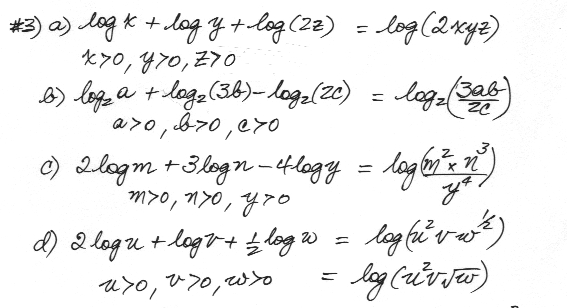 #3) a) log x + log y + log(2z) = log(2xyz)
x>0, y>0, z>0
b) log₂a + log₂(3b) - log₂(2c) = log₂(3ab/2c)
a>0, b>0, c>0
c) 2logm + 3logn - 4logy = log(m² x n³/y⁴)
m>0, n>0, y>0
d) 2logu + logv + ½ log w = log(u²vw^½)
u>0, v>0, w>0 = log(u²v√w)